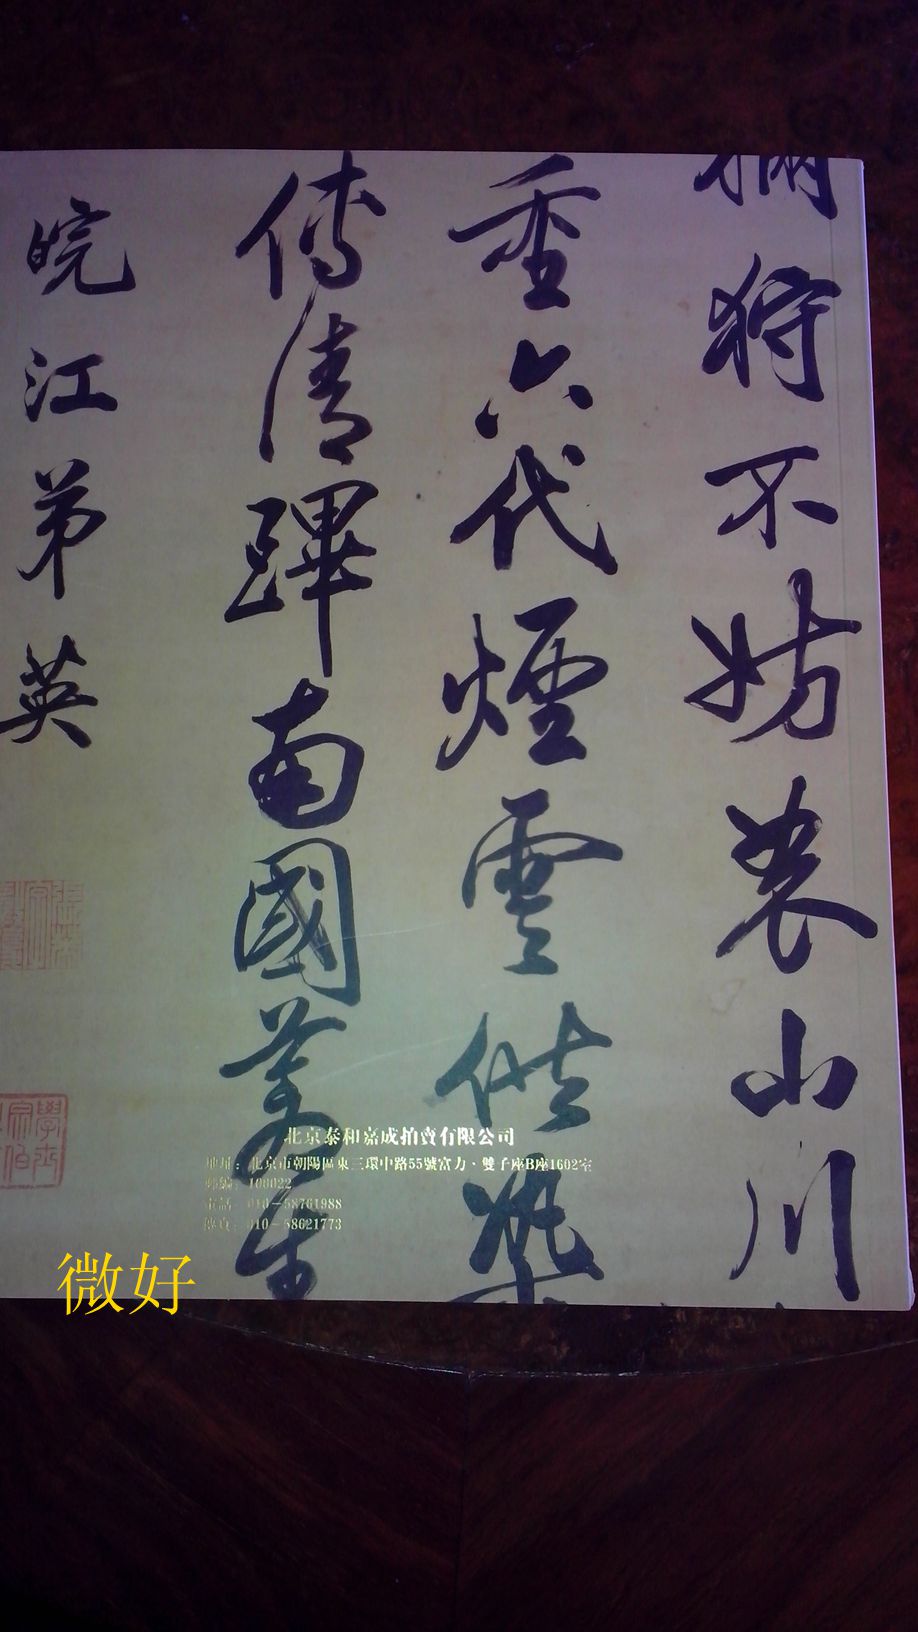 狩不妨農山川
六代煙雲供
傳清蹕南國
皖江弟英
北京泰和嘉成拍賣有限公司
地址：北京市朝陽區東三環中路55號富力、雙子座B座1602室
郵編：100022
電話：010－58761988
傳真：010－58621773
微好